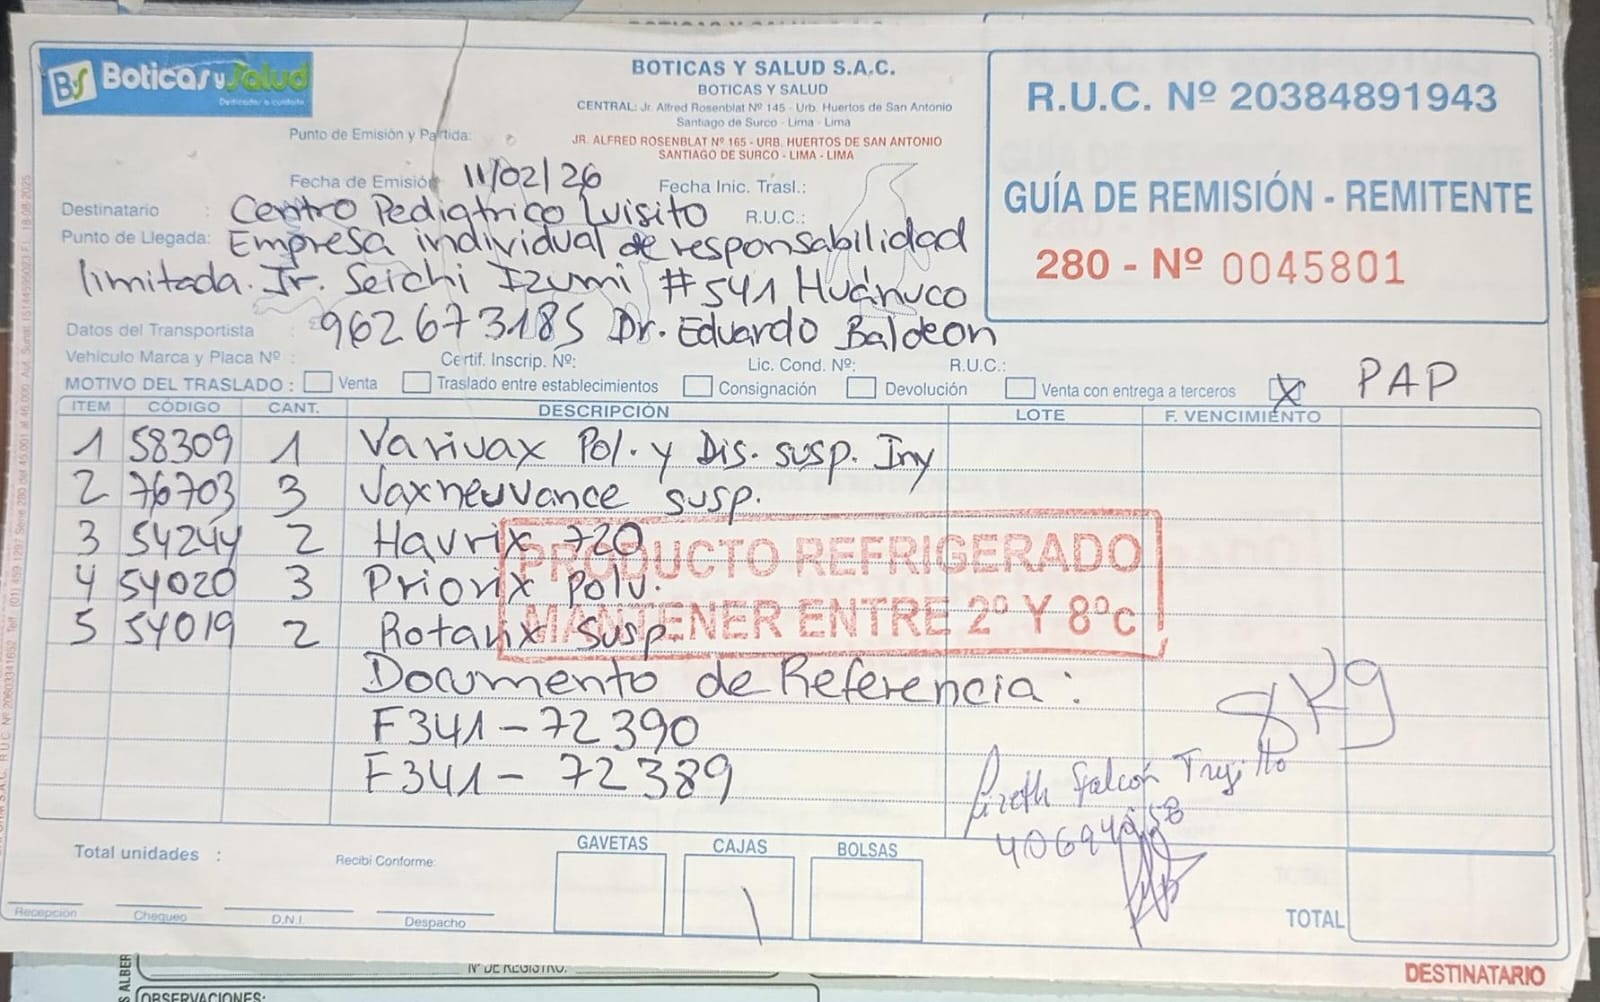 BS Boticas y Salud
Dedicados a cuidarte.
BOTICAS Y SALUD S.A.C.
BOTICAS Y SALUD
CENTRAL: Jr. Alfred Rosenblat Nº 145 - Urb. Huertos de San Antonio
Santiago de Surco - Lima - Lima
Punto de Emisión y Partida:
JR. ALFRED ROSENBLAT Nº 165 - URB. HUERTOS DE SAN ANTONIO
SANTIAGO DE SURCO - LIMA - LIMA
R.U.C. Nº 20384891943
GUÍA DE REMISIÓN - REMITENTE
280 - Nº 0045801
Fecha de Emisión 11/02/26 Fecha Inic. Trasl.:
Destinatario : Centro Pediatrico Luisito R.U.C.:
Punto de Llegada: Empresa individual de responsabilidad
limitada. Jr. Seichi Izumi #541 Huánuco
Datos del Transportista : 962673185 Dr. Eduardo Baldeon
Vehículo Marca y Placa Nº : Certif. Inscrip. Nº: Lic. Cond. Nº: R.U.C.:
MOTIVO DEL TRASLADO : Venta Traslado entre establecimientos Consignación Devolución Venta con entrega a terceros X PAP
ITEM CÓDIGO CANT. DESCRIPCIÓN LOTE F. VENCIMIENTO
1 58309 1 Varivax Pol. y Dis. susp. Iny
2 76703 3 Vaxneuvance susp.
3 54244 2 Havrix 720
4 54020 3 Priorix Polv.
5 54019 2 Rotarix Susp.
PRODUCTO REFRIGERADO
MANTENER ENTRE 2º Y 8ºC
Documento de Referencia :
F341-72390
F341-72389
8Kg
Falcón Trujillo
Total unidades :
Recibí Conforme:
GAVETAS CAJAS BOLSAS
Recepción Chequeo D.N.I. Despacho
TOTAL
DESTINATARIO
Nº DE REGISTRO:
OBSERVACIONES: